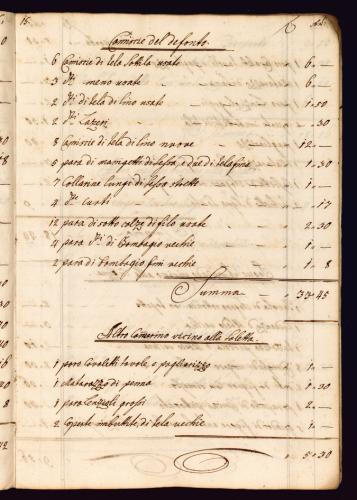 15.
Camicie del defonto.
6 Camicie di tela sottile usate - 6. -
3 dte meno usate - 6. -
2 dte di tela di lino usate - 1.50
2 dte Lazzeri - .30
8 Camicie di tela di lino nuove - 12. -
6 para di manigetti di , e due di tela fina 1.30
7 Collarine lungi di stretto 1. -
4 dti curti - . 17
12 para di sotto calze di filo usate 2.30
4 para dti di Bombagio vechie 1. -
2 para di Bombagio fini vechie 1. 8
Summa - 33.45
Altro Camerino vicino alla Saletta.
1 paro Cavaletti tavole, e pagliarizzo 1. -
1 Matarazzo di penna 1.30
1 paro Lenzuoli grossi 2. -
2 Coperte imbuttite, di tela vechie 1. -
5.30